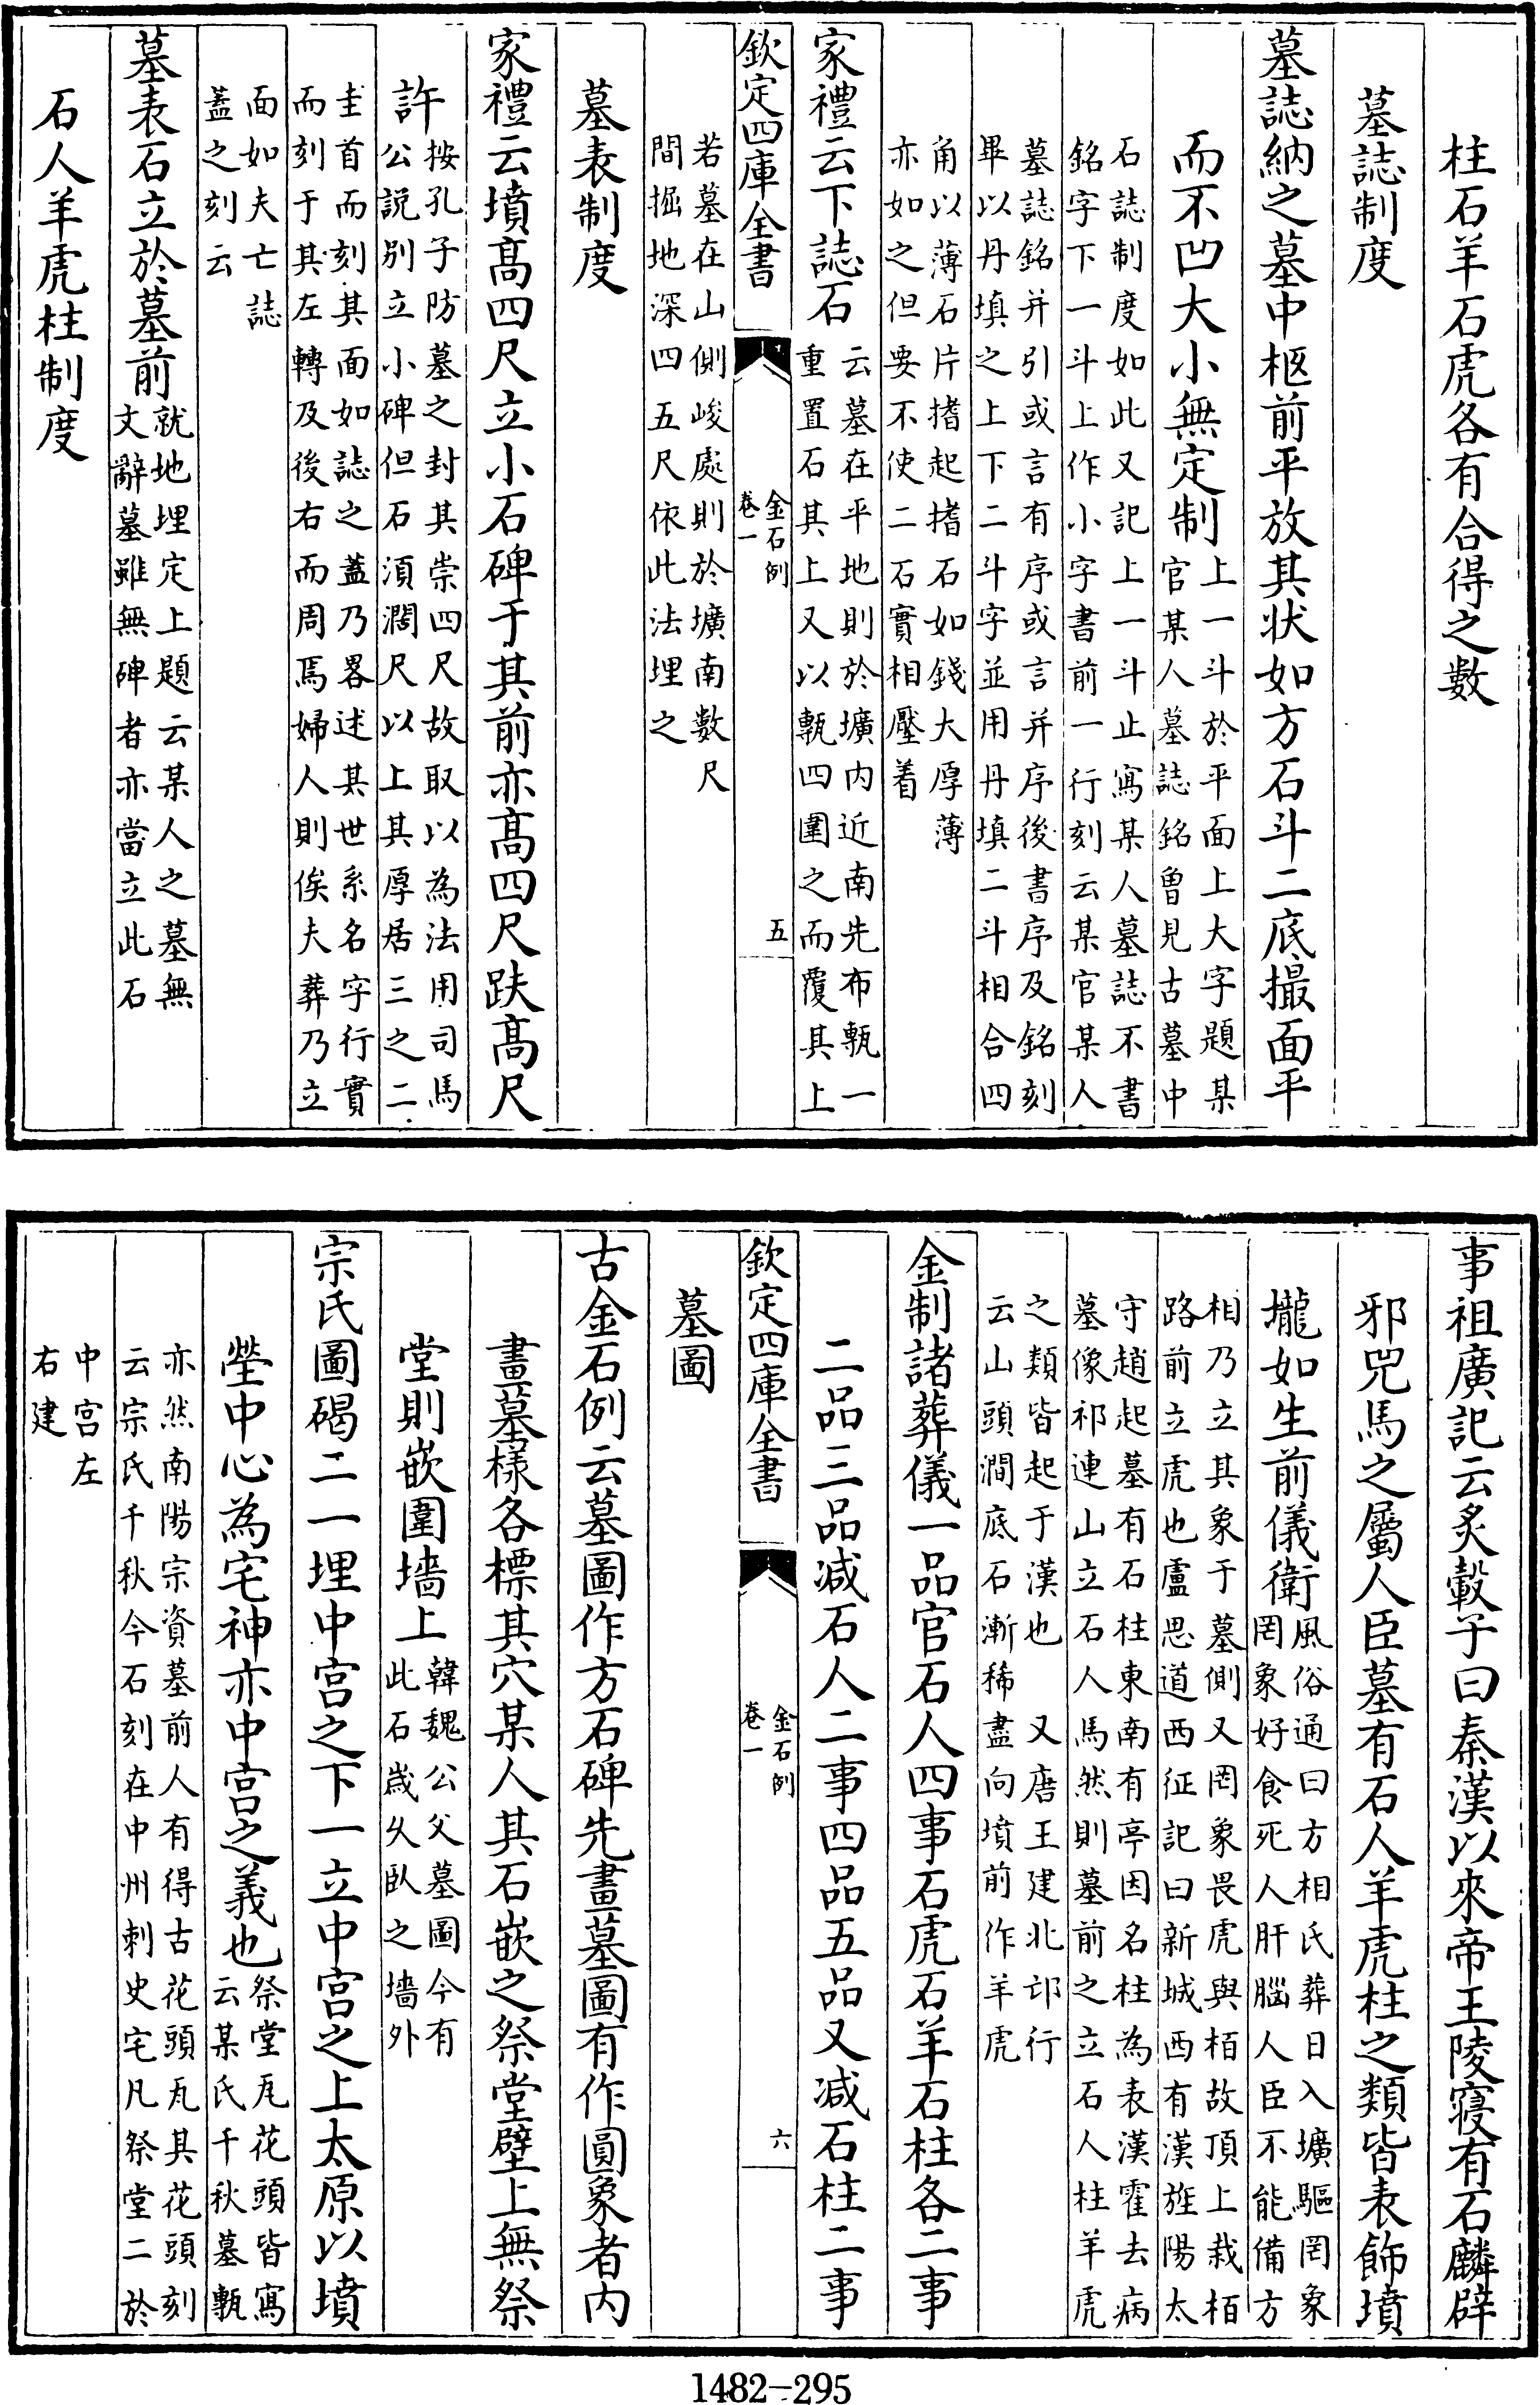 柱石羊石虎各有合得之數
墓誌制度
墓誌納之墓中柩前平放其状如方石斗二底撮面平
而不凹大小無定制上一斗於平面上大字題某
官某人墓誌銘曾見古墓中
石誌制度如此又記上一斗止寫某人墓誌不書
銘字下一斗上作小字書前一行刻云某官某人
墓誌銘并引或言有序或言并序後書序及銘刻
畢以丹填之上下二斗字並用丹填二斗相合四
角以薄石片揞起揞石如錢大厚薄
亦如之但要不使二石實相壓着
家禮云下誌石云墓在平地則於壙内近南先布甎一
重置石其上又以甎四圍之而覆其上
欽定四庫全書
金石例
卷一
五
若墓在山側峻處則於壙南數尺
間掘地深四五尺依此法埋之
墓表制度
家禮云墳髙四尺立小石碑于其前亦髙四尺趺髙尺
許按孔子防墓之封其崇四尺故取以為法用司馬
公説别立小碑但石湏濶尺以上其厚居三之二
圭首而刻其面如誌之蓋乃畧述其世系名字行實
而刻于其左轉及後右而周焉婦人則俟夫葬乃立
面如夫亡誌
蓋之刻云
墓表石立於墓前就地埋定上題云某人之墓無
文辭墓雖無碑者亦當立此石
石人羊虎柱制度
事祖廣記云炙轂子曰秦漢以來帝王陵寢有石麟辟
邪兕馬之屬人臣墓有石人羊虎柱之類皆表飾墳
壠如生前儀衛風俗通曰方相氏葬日入壙驅罔象
罔象好食死人肝腦人臣不能備方
相乃立其象于墓側又罔象畏虎與栢故頂上栽栢
路前立虎也盧思道西征記曰新城西有漢旌陽太
守趙起墓有石柱東南有亭因名柱為表漢霍去病
墓像祁連山立石人馬然則墓前之立石人柱羊虎
之類皆起于漢也 又唐王建北邙行
云山頭澗底石漸稀盡向墳前作羊虎
金制諸葬儀一品官石人四事石虎石羊石柱各二事
二品三品减石人二事四品五品又减石柱二事
欽定四庫全書
金石例
卷一
六
墓圖
古金石例云墓圖作方石碑先畫墓圖有作圓象者内
畫墓樣各標其穴某人其石嵌之祭堂壁上無祭
堂則嵌圍墻上韓魏公父墓圖今有
此石歲久臥之墻外
宗氏圖碣二一埋中宫之下一立中宫之上太原以墳
塋中心為宅神亦中宫之義也祭堂瓦花頭皆寫
云某氏千秋墓甎
亦然南陽宗資墓前人有得古花頭瓦其花頭刻
云宗氏千秋今石刻在中州刺史宅凡祭堂二於
中宫左
右建
1482-295